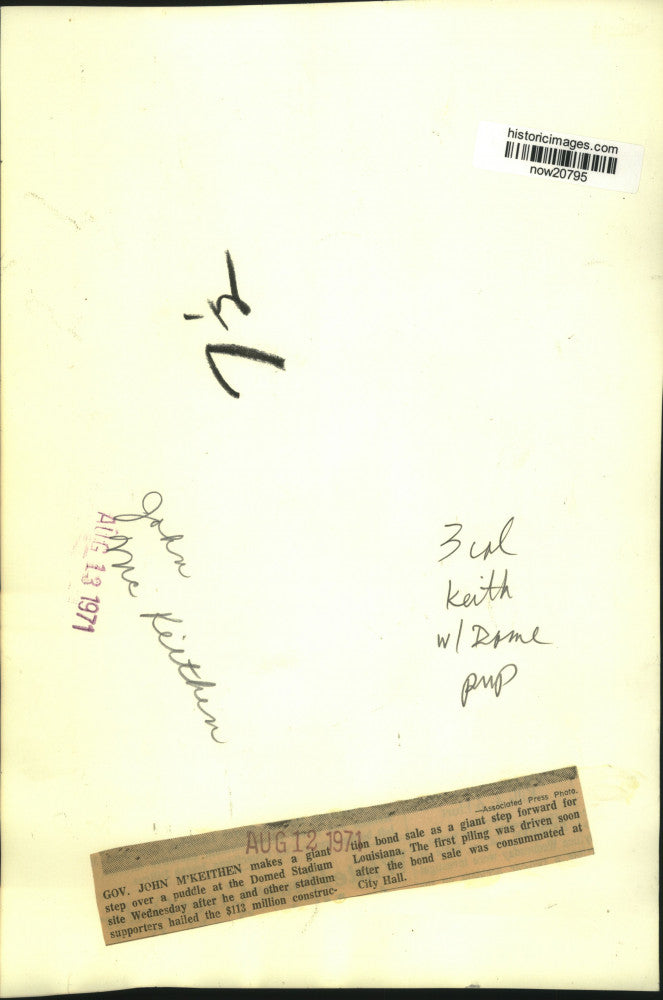 historicimages.com
now20795
John
McKeithen
AUG 13 1971
3 col
Keith
w/ Dome
pnp
—Associated Press Photo.
AUG 12 1971
GOV. JOHN M'KEITHEN makes a giant
step over a puddle at the Domed Stadium
site Wednesday after he and other stadium
supporters hailed the $113 million construc-
tion bond sale as a giant step forward for
Louisiana. The first piling was driven soon
after the bond sale was consummated at
City Hall.